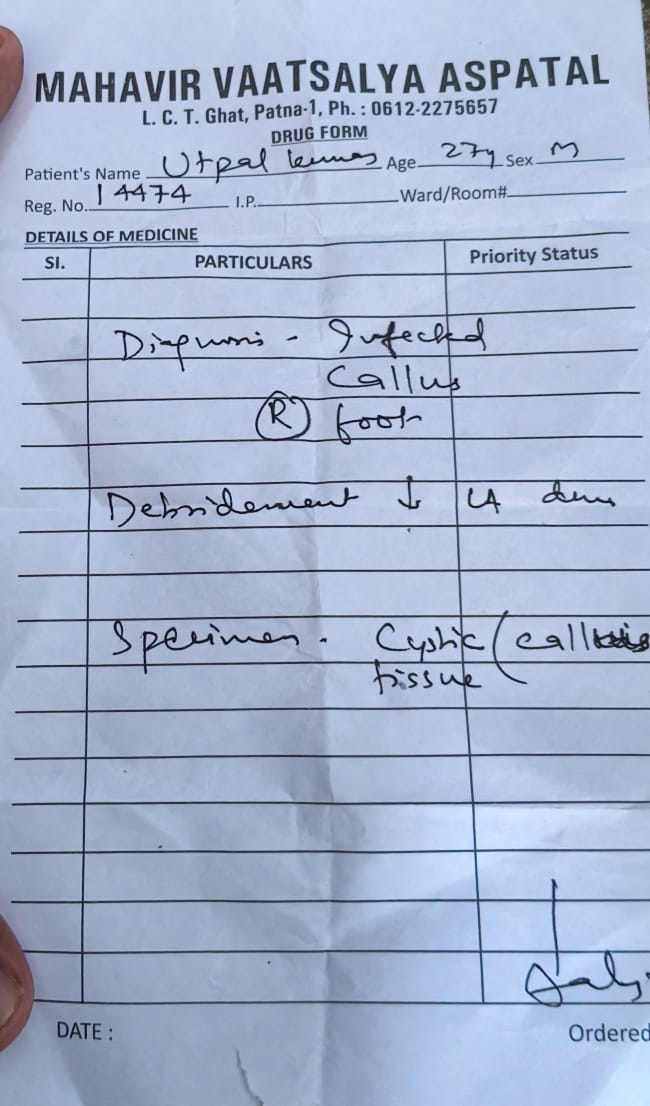 MAHAVIR VAATSALYA ASPATAL
L. C. T. Ghat, Patna-1, Ph. : 0612-2275657
DRUG FORM
Patient's Name Utpal Kumar Age 27y Sex M
Reg. No. 14474 I.P. Ward/Room#
DETAILS OF MEDICINE
SI. PARTICULARS Priority Status
Diagnosis - Infected
Callus
(R) foot
Debridement ↓ LA
Specimen - Cystic (
tissue
DATE : Ordered